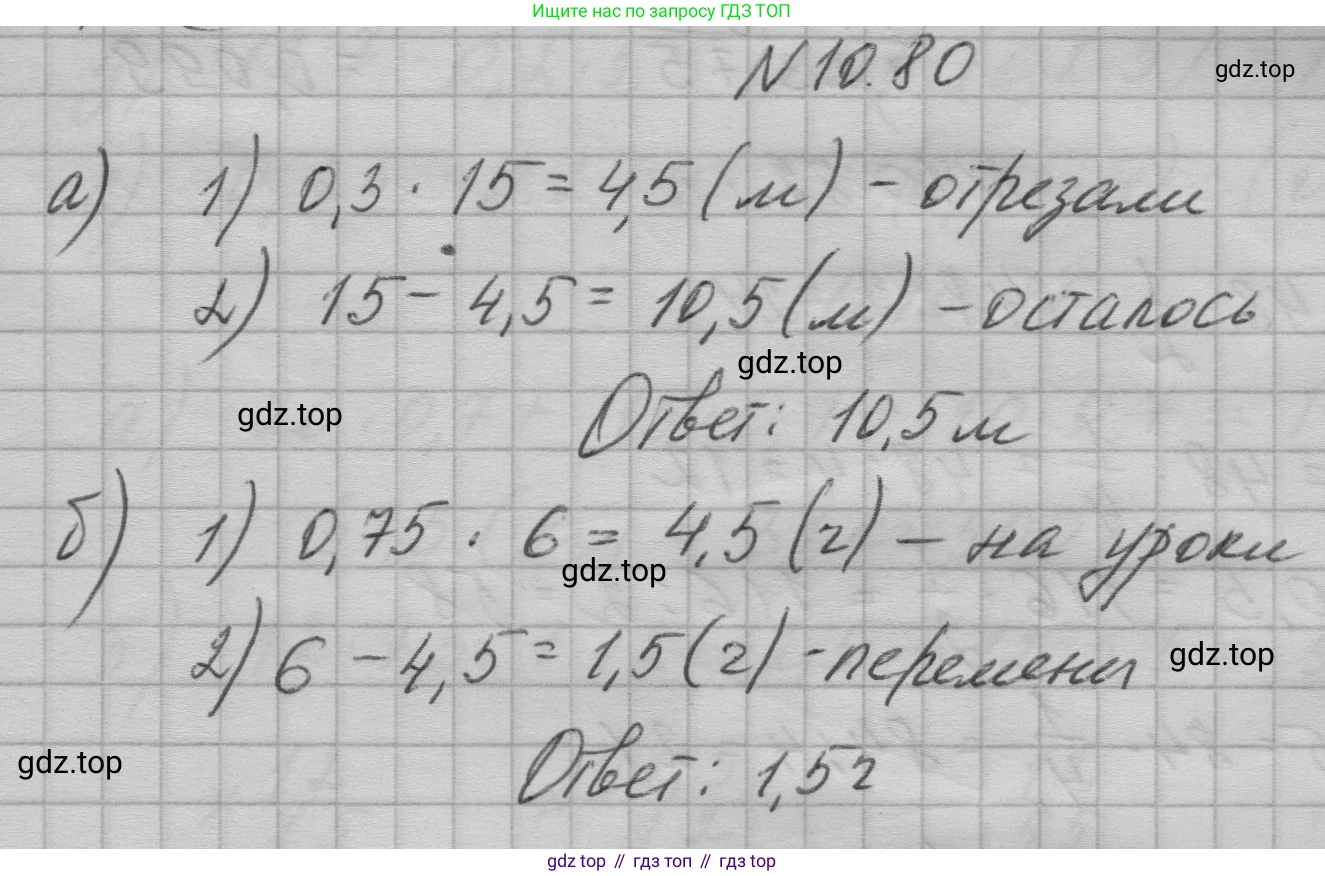 Ищите нас по запросу ГДЗ ТОП
N 10.80
gdz.top
а) 1) 0,3 · 15 = 4,5 (м) - отрезали
2) 15 - 4,5 = 10,5 (м) - осталось
gdz.top
gdz.top
Ответ: 10,5 м
б) 1) 0,75 · 6 = 4,5 (ч) - на уроки
gdz.top
2) 6 - 4,5 = 1,5 (ч) - перемены
gdz.top
gdz.top
Ответ: 1,5 ч
gdz top // гдз топ // гдз top